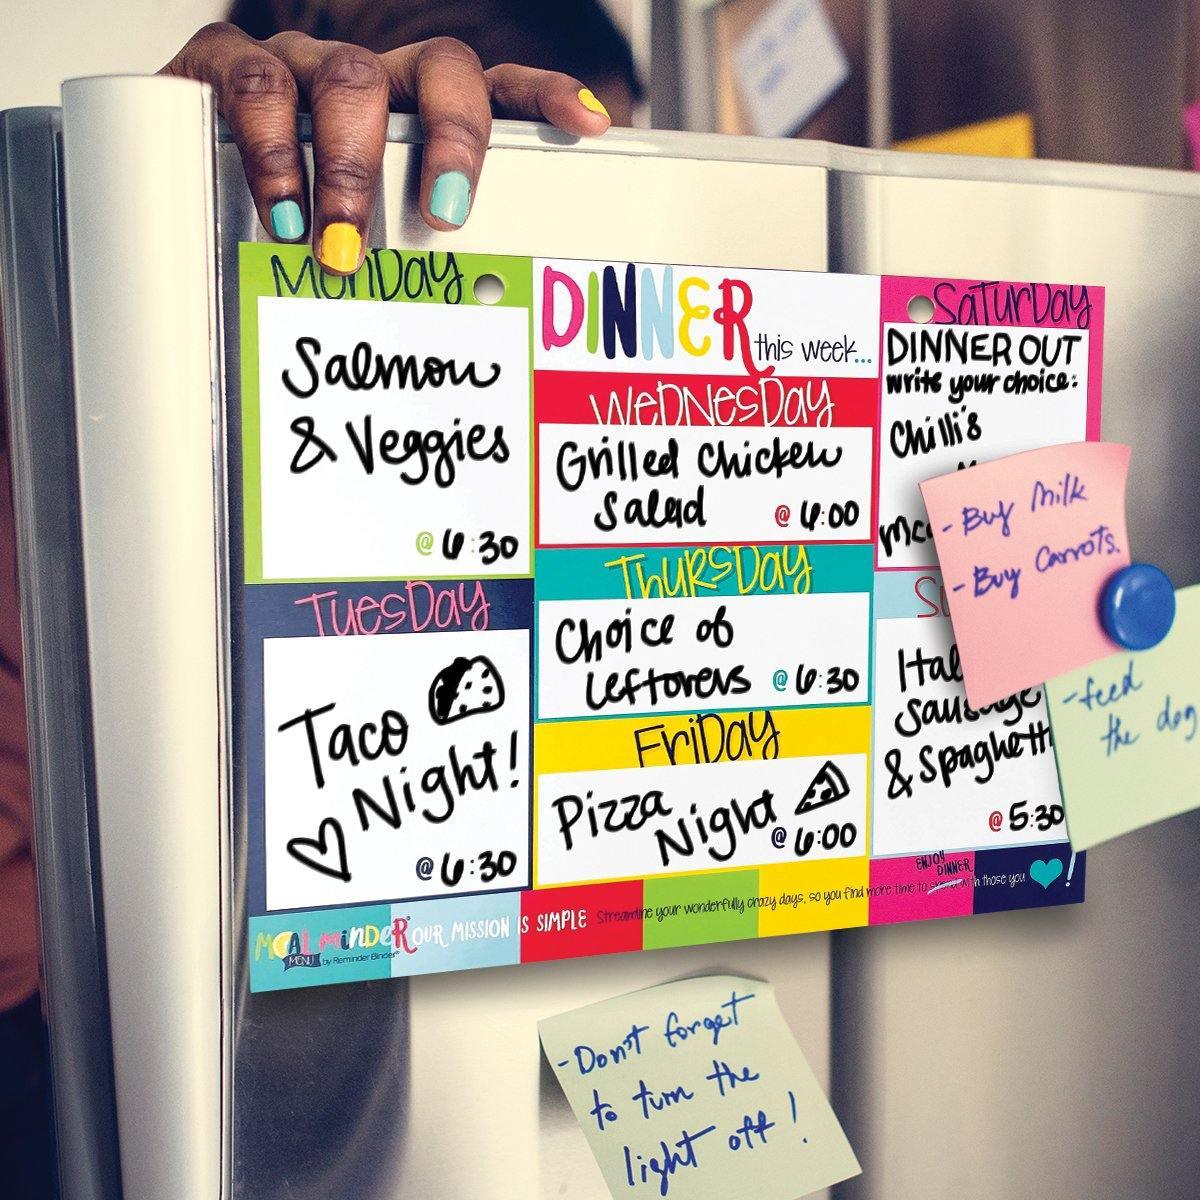 MonDay
Salmon
& Veggies
@ 6:30
TuesDay
Taco
Night!
@ 6:30
DINNER
this week...
WeDNesDay
Grilled Chicken
Salad
@ 6:00
ThursDay
Choice of
Leftovers @ 6:30
FriDay
Pizza
Night
@ 6:00
SaTurDay
DINNER OUT
write your choice:
Chilli's
Sausage
& Spaghetti
@ 5:30
- Buy Milk
- Buy Carrots.
- feed
the dog
MEAL minDeR®
MENU by Reminder Binder®
OUR MISSION IS SIMPLE
Streamline your wonderfully crazy days, so you find more time to spend with those you !
ENJOY
DINNER
- Don't forget
to turn the
light off!